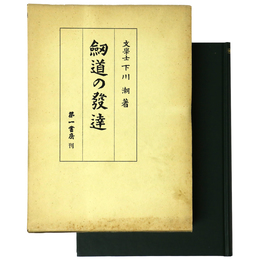 文學士 下川 潮 著
劔道の發達
第一書房 刊